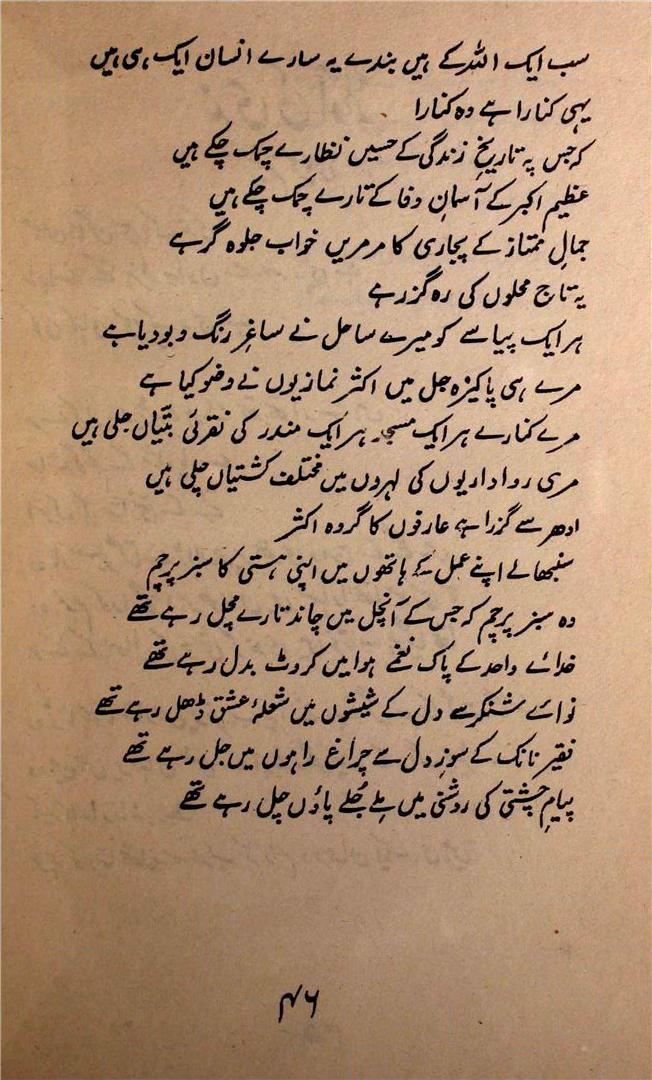 سب ایک اللہ کے ہیں بندے یہ سارے انسان ایک ہی ہیں
یہی کنارا ہے وہ کنارا
کہ جس پہ تاریخِ زندگی کے حسیں نظارے چمک چکے ہیں
عظیم اکبر کے آسمانِ وفا کے تارے چمک چکے ہیں
جمالِ ممتاز کے پجاری کا مرمریں خواب جلوہ گر ہے
یہ تاج محلوں کی رہ گزر ہے
ہر ایک پیاسے کو میرے ساحل نے ساغرِ رنگ و بو دیا ہے
مرے ہی پاکیزہ جل میں اکثر نمازیوں نے وضو کیا ہے
مرے کنارے ہر ایک مسجد ہر ایک مندر کی نقرئی بتّیاں جلی ہیں
مری رواداریوں کی لہروں میں مختلف کشتیاں چلی ہیں
ادھر سے گزرا ہے عارفوں کا گروہ اکثر
سنبھالے اپنے عمل کے ہاتھوں میں اپنی ہستی کا سبز پرچم
وہ سبز پرچم کہ جس کے آنچل میں چاند تارے مچل رہے تھے
خدائے واحد کے پاک نغمے ہوا میں کروٹ بدل رہے تھے
نوائے شنکر سے دل کے شیشوں میں شعلۂ عشق ڈھل رہے تھے
فقیر نانک کے سوزِ دل سے چراغ راہوں میں جل رہے تھے
پیامِ چشتی کی روشنی میں ملے جُلے پاؤں چل رہے تھے
۴۶